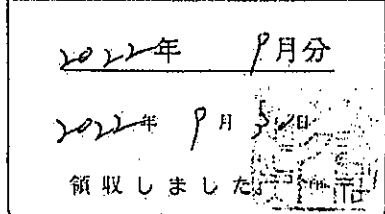 2022年 9月分
2022年 9月30日
領収しました